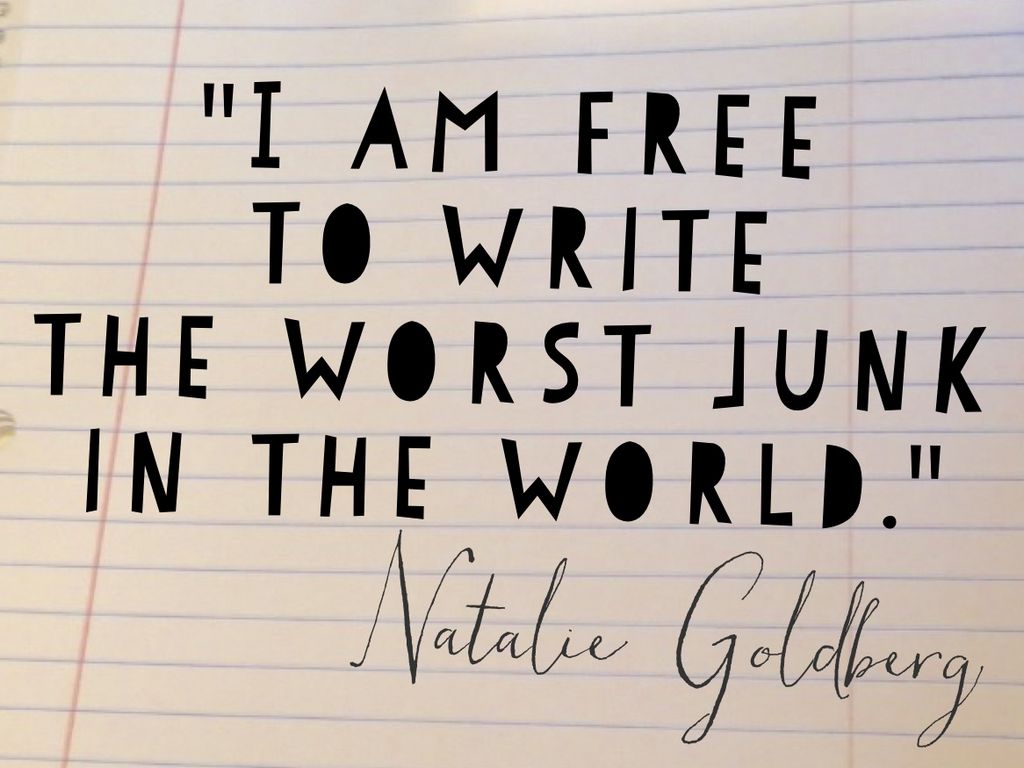 "I AM FREE
TO WRITE
THE WORST JUNK
IN THE WORLD."
Natalie Goldberg